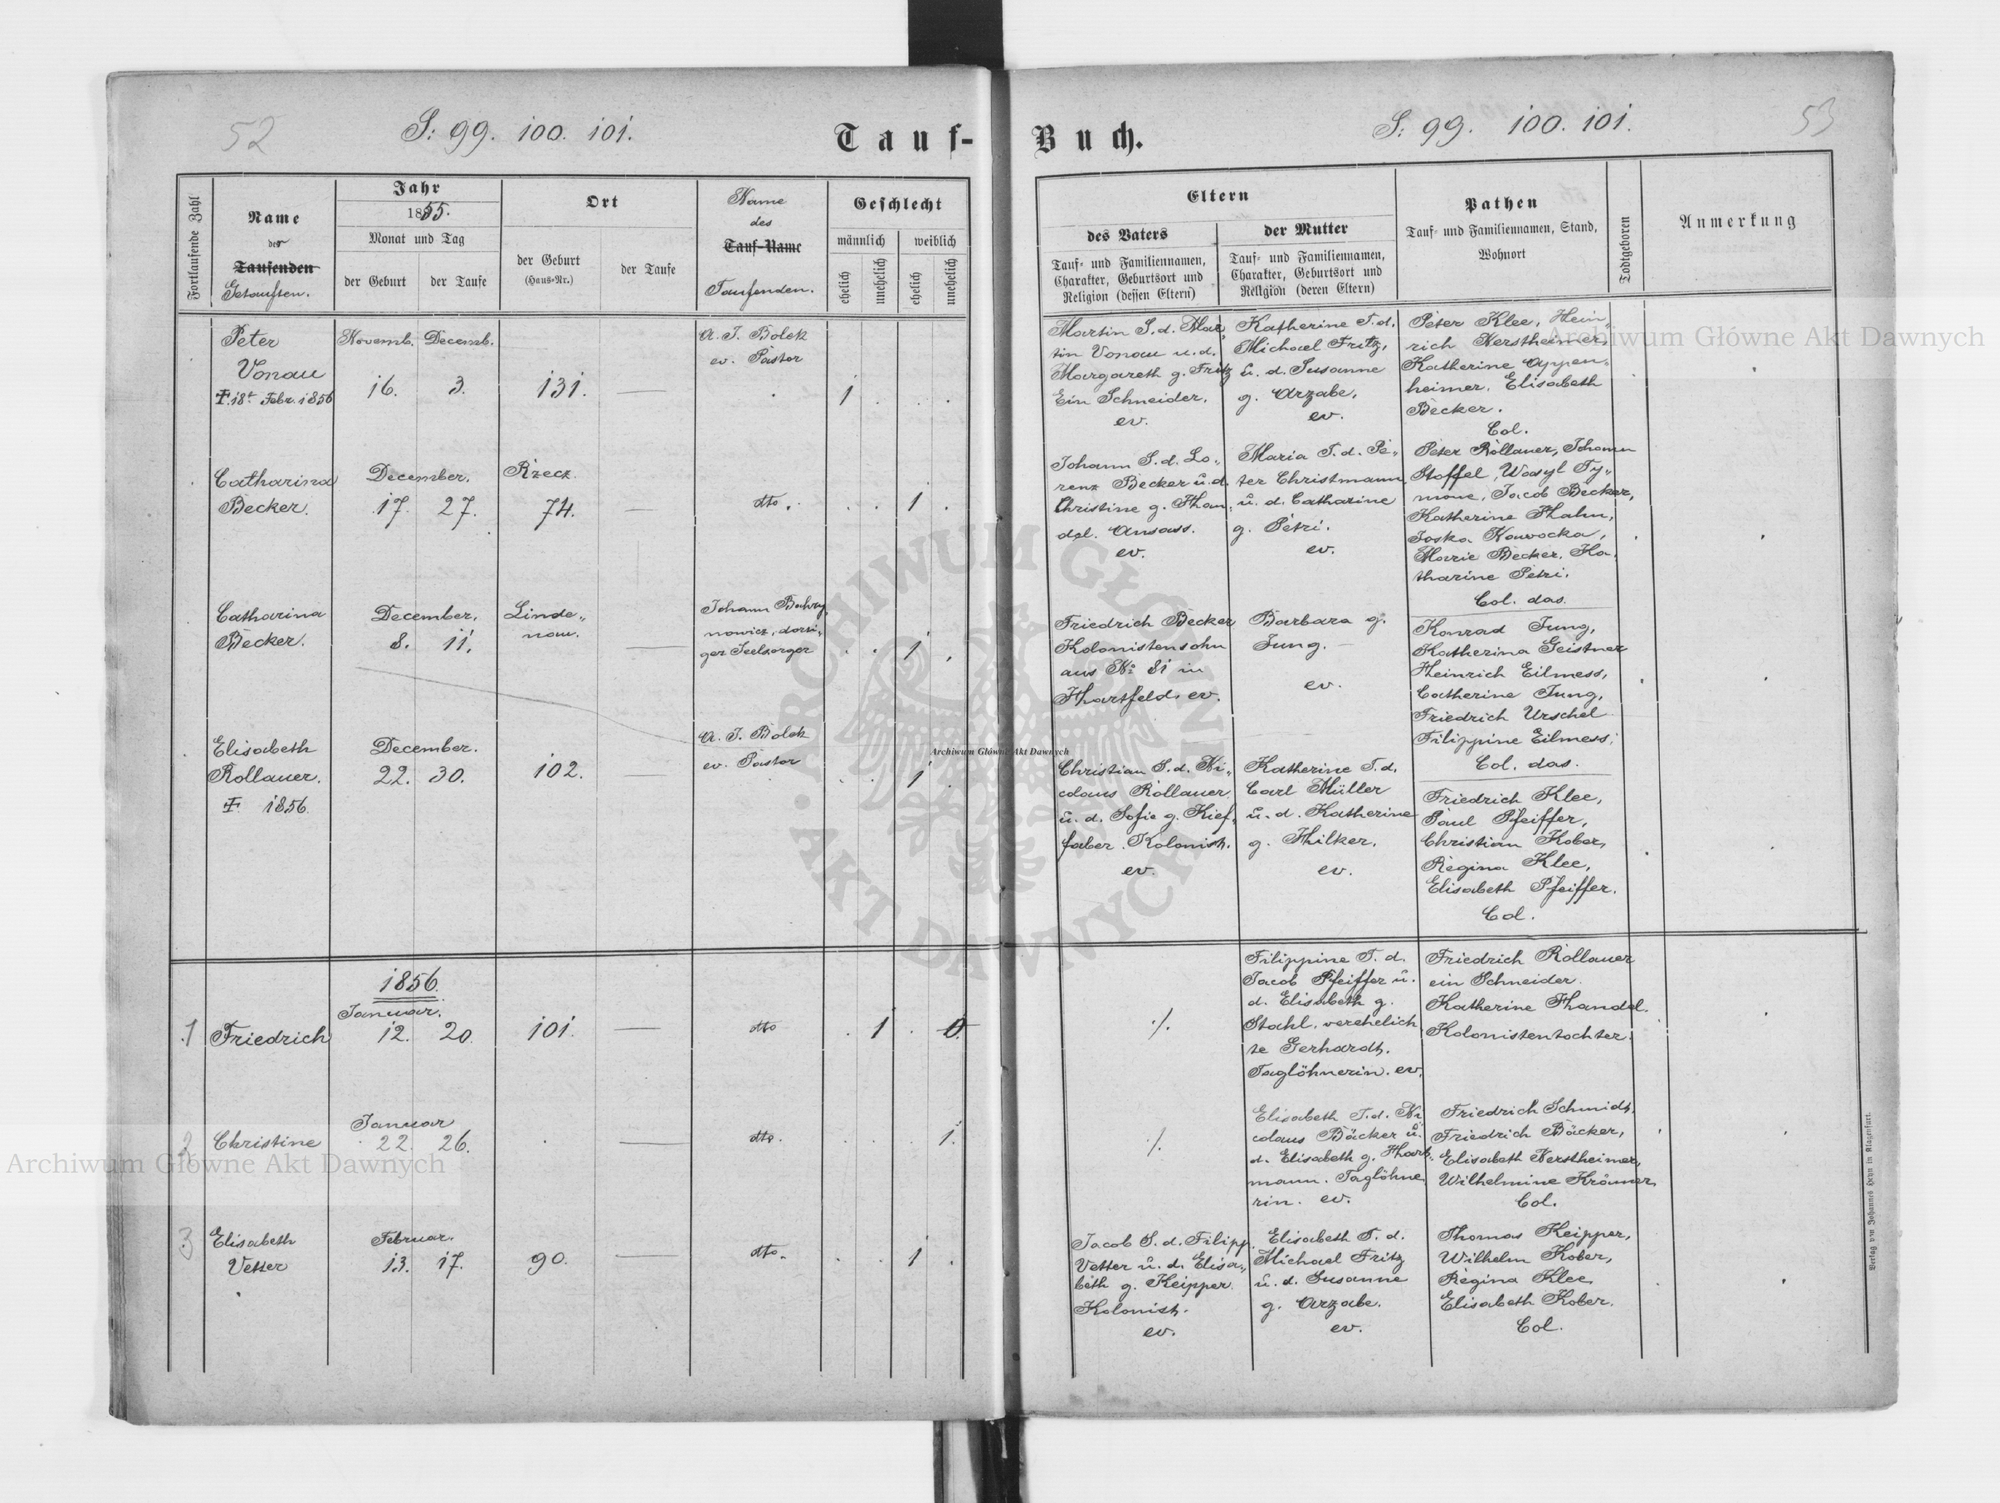 52
S: 99. 100. 101.
Tauf-
Fortlaufende Zahl
Name
des
Taufenden
Getauften.
Jahr
1855.
Monat und Tag
der Geburt
der Taufe
Ort
der Geburt
(Haus-Nr.)
der Taufe
Name
des
Tauf-Name
Taufenden.
Geschlecht
männlich
weiblich
ehelich
unehelich
ehelich
unehelich
Peter
Vonau
18t Febr. 1856
Novemb. Decemb.
16. 3.
131.
A. J. Bolek
ev. Pastor
1
Catharina
Becker.
December.
17. 27.
Rzecz.
74.
dto.
1
Catharina
Becker.
December.
8. 11.
Linde„
nau.
Johann
nowicz, dorti„
ger Seelsorger
1
Elisabeth
Rollauer.
1856.
December.
22. 30.
102.
A. J. Bolek
ev. Pastor
1
1856.
1
Friedrich
Januar.
12. 20.
101.
dto
1
0
2
Christine
Januar
22. 26.
dto.
1.
3
Elisabeth
Vetter
Februar.
13. 17.
90.
dto.
1
Buch.
S: 99. 100. 101.
53
Eltern
des Vaters
Tauf- und Familiennamen,
Charakter, Geburtsort und
Religion (dessen Eltern)
der Mutter
Tauf- und Familiennamen,
Charakter, Geburtsort und
Religion (deren Eltern)
Pathen
Tauf- und Familiennamen, Stand,
Wohnort
Todtgeboren
Anmerkung
Martin S. d. Mar„
tin Vonau u. d.
Margareth g. Fritz
Ein Schneider.
ev.
Katherine T. d.
Michael Fritz,
u. d. Susanne
g. Arzabe.
ev.
Peter Klee, Hein„
rich Kerstheimer,
Katherine Oppen„
heimer, Elisabeth
Becker.
Col.
Johann S. d. Lo„
renz Becker u. d.
Christine g. Han„
del. Ansass.
ev.
Maria T. d. Pe„
ter Christmann,
u. d. Catharine
g. Petri.
ev.
Peter Rollauer, Johann
Stoffel, Wasyl Ty„
mone, Jacob Becker,
Katherine Hahn,
Joska Kowocka,
Marie Becker, Ka„
tharine Petri.
Col. das.
Friedrich Becker
Kolonistensohn
aus No 81 in
Hartfeld. ev.
Barbara g.
Jung.
ev.
Konrad Jung,
Katherina Geistner
Heinrich Eilmess,
Catherine Jung,
Friedrich Urschel
Filippine Eilmess;
Col. das.
Christian S. d. Ni„
colaus Rollauer
u. d. Sofie g. Kief„
faber. Kolonist.
ev.
Katherine T. d.
Carl Müller
u. d. Katherine
g. Hilker.
ev.
Friedrich Klee,
Paul Pfeiffer,
Christian Kober,
Regina Klee,
Elisabeth Pfeiffer.
Col.
./.
Filippine T. d.
Jacob Pfeiffer u.
d. Elisabeth g.
Stahl, verehelich
te Gerhardt.
Taglöhnerin. ev.
Friedrich Rollauer
ein Schneider.
Katherine Handel.
Kolonistentochter.
./.
Elisabeth T. d. Ni
colaus Bäcker u.
d. Elisabeth g. Hart„
mann. Taglöhne
rin. ev.
Friedrich Schmidt,
Friedrich Bäcker,
Elisabeth Kerstheimer,
Wilhelmine Krämer,
Col.
Jacob S. d. Filipp
Vetter u. d. Elisa„
beth g. Keipper.
Kolonist.
ev.
Elisabeth T. d.
Michael Fritz
u. d. Susanne
g. Arzabe.
ev.
Thomas Keipper,
Wilhelm Kober,
Regina Klee,
Elisabeth Kober.
Col.
Verlag von Johannes Heyn in Klagenfurt.
Archiwum Główne Akt Dawnych
Archiwum Główne Akt Dawnych
Archiwum Główne Akt Dawnych
ARCHIWUM GŁÓWNE AKT DAWNYCH